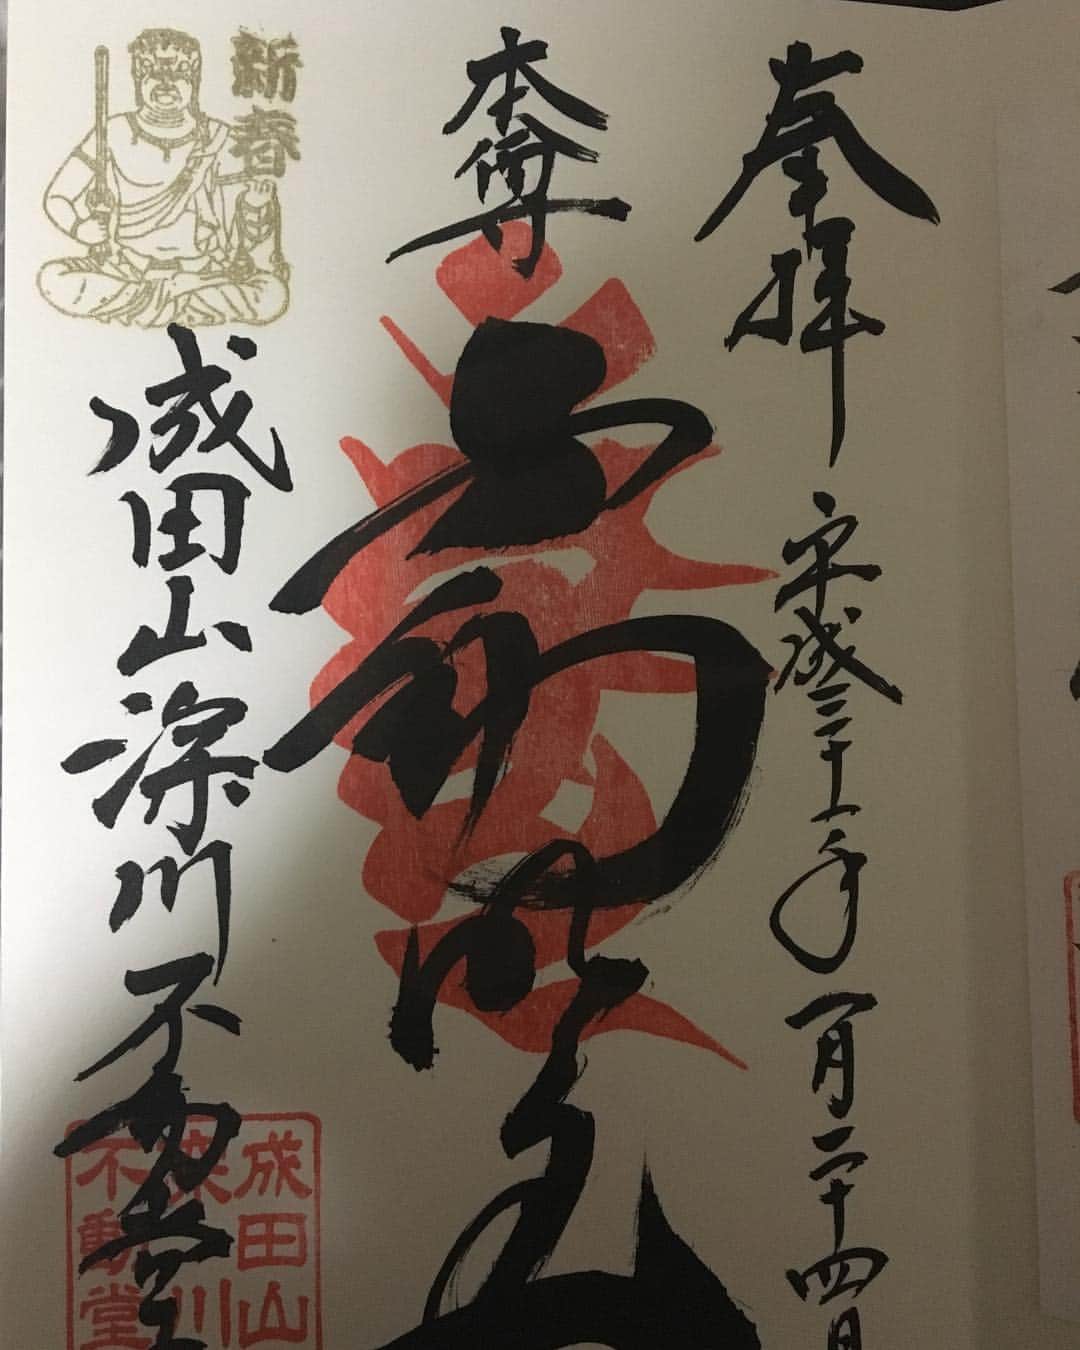 奉拝
平成三十一年一月二十四日
本尊
不動明王
新春
成田山深川不動堂
成田山
深川
不動堂